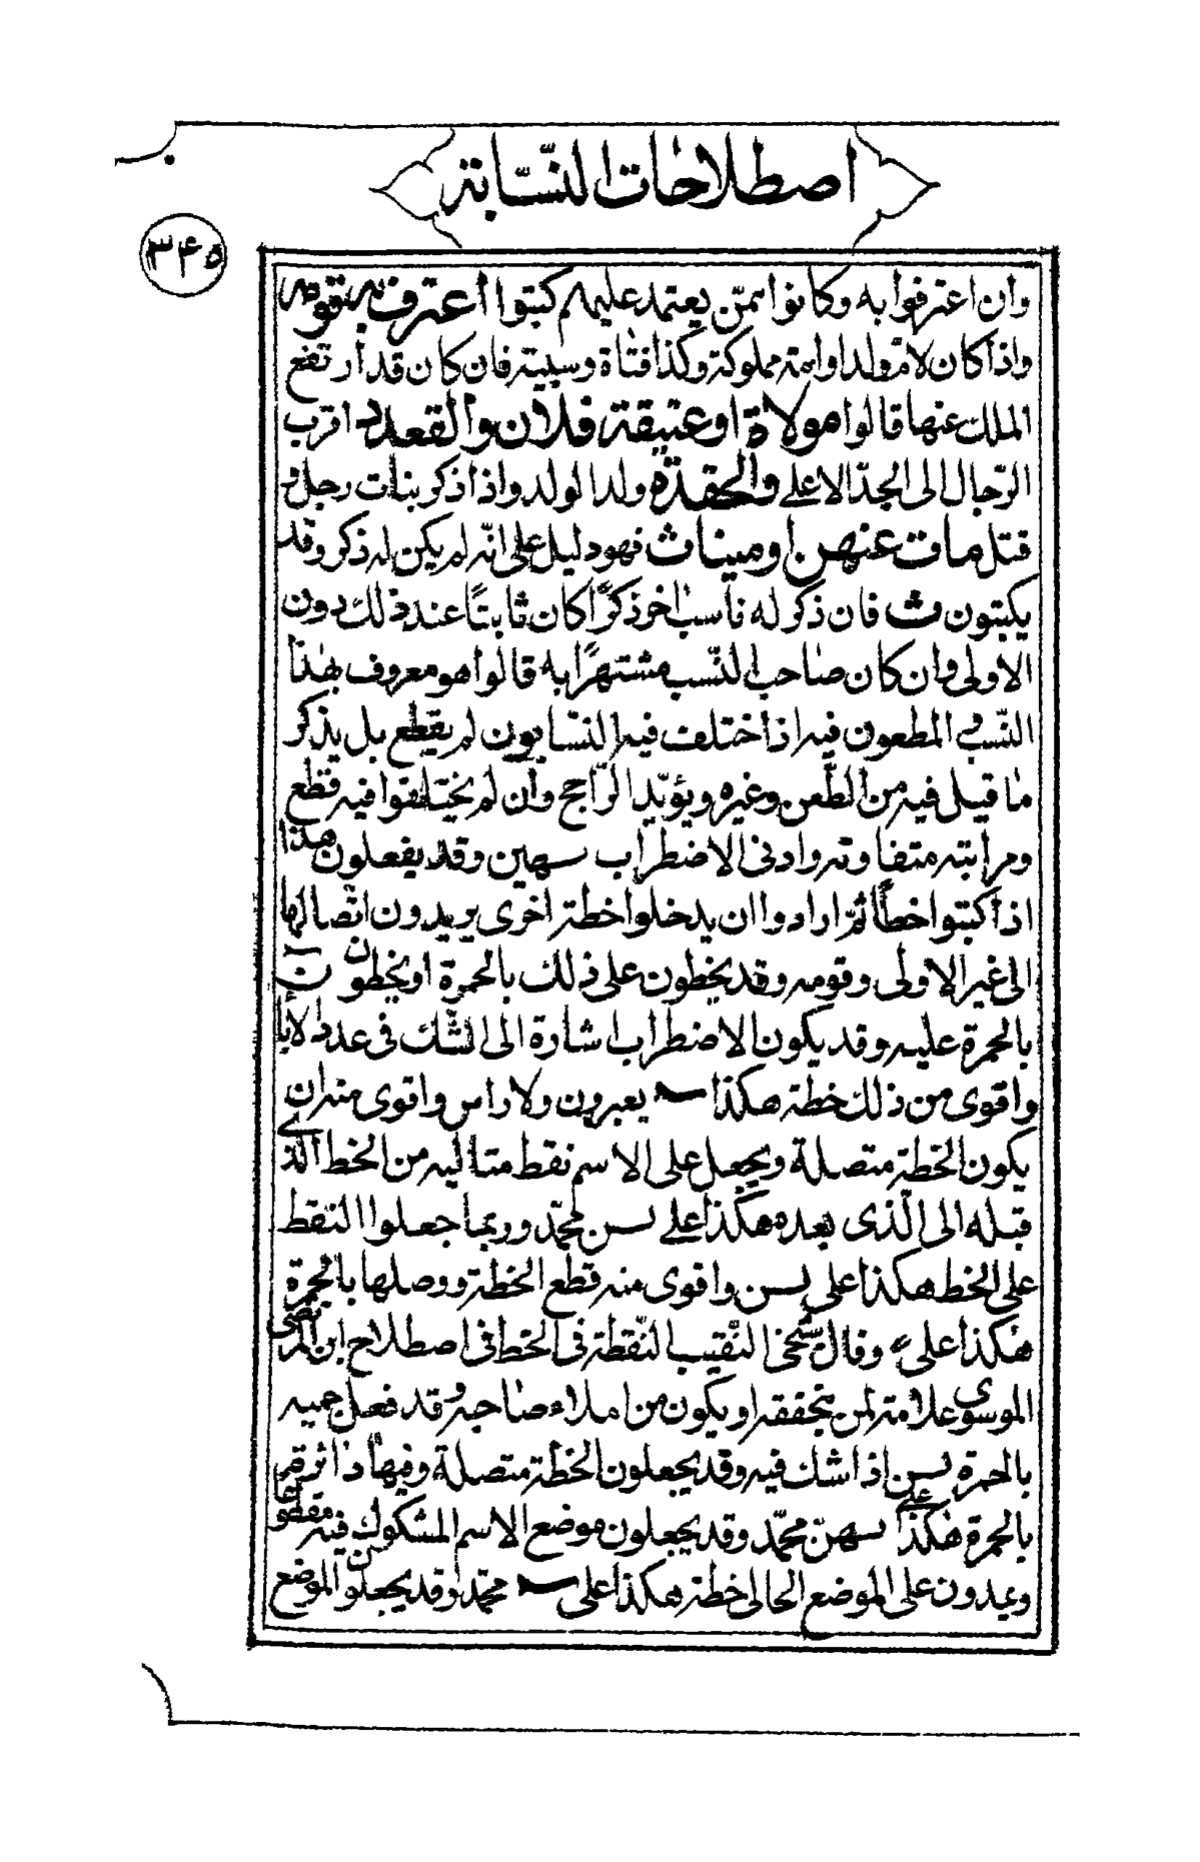 اصطلاحات النسّابة
۳۴۵
وان اعترفوا به وكانوا ممّن يعتمد عليهم كتبوا اعترف به قومه
واذا كان لامّ ولد اوامته مملوكة وكذا فتاة وسبية فان كان قد ارتفع
الملك عنها قالوا مولاة اوعتيقة فلان والقعدد اقرب
الرّجال الى الجدّ الاعلى والحفدة ولد الولد واذا ذكر بنات رجل و
قتل مات عنهن اوميناث فهو دليل على انّه لم يكن له ذكر وقد
يكتبون ث فان ذكر له ناسب اخر ذكرًا كان ثابتًا عند ذلك دون
الاولى وان كان صاحب النّسب مشتهرًا به قالوا هو معروف بهذا
النّسب المطعون فيه اذا اختلف فيه النسّابون لم يقطع بل يذكر
ما قيل فيه من الطّعن وغيره ويؤيّد الرّاجح وان لم يختلفوا فيه قطع
ومراتبته متفاوته وادنى الاضطراب سهين وقد يفعلون هذا
اذا كتبوا خطا ثمّ ارادوا ان يدخلوا خطة اخرى يريدون اتّصالها
الى غير الاولى وقومه وقد يخطون على ذلك بالحمرة اويخطون ن
بالحمرة عليه وقد يكون الاضطراب اشارة الى الشّك فى عدد الابا
واقوى من ذلك خطة هكذا يعبرون ولاراس واقوى منه ان
يكون الخطة متصلة ويجعل على الاسم نقط متتاليه من الخط الّذى
قبله الى الّذى بعده هكذا على بسن محمّد وربما جعلوا النقط
على الخط هكذا على بسن واقوى منه قطع الخطة ووصلها بالحمرة
هكذا على وقال شيخى النّقيب النّقطة فى الخط فى اصطلاح ابن المرتضى
الموسوى علامة لمن يتحققه او يكون من املاء صاحبه وقد فعل جميه
بالحمرة بسن اذا شك فيه وقد يجعلون الخطة متصلة وفيها دائرة
بالحمرة هكذا على بسهن محمّد وقد يجعلون موضع الاسم المشكوك فيه مقطوعا
ويمدون على الموضع الخالى خطة هكذا على محمّد وقد يجعلون الموضع